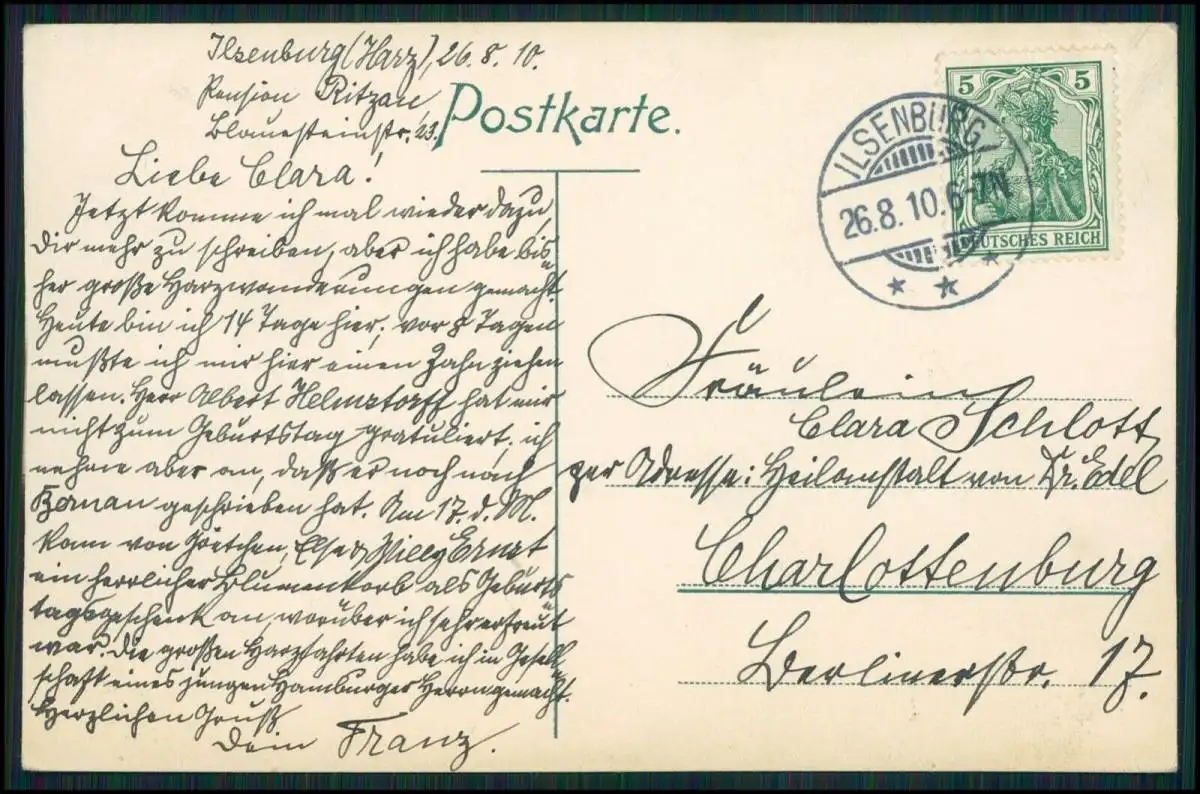 Ilsenburg (Harz), 26. 8. 10.
Pension Ritzau,
Blauesteinstr. 23.
Postkarte.
5 5
DEUTSCHES REICH
ILSENBURG
26.8.10.6-7N
Liebe Clara!
Jetzt komme ich mal wieder dazu,
Dir mehr zu schreiben, aber ich habe bis-
her große Harzwanderungen gemacht.
Heute bin ich 14 Tage hier; vor 8 Tagen
mußte ich mir hier einen Zahn ziehen
lassen. Herr Albert Helmstorff hat mir
nicht zum Geburtstag gratuliert; ich
nehme aber an, daß er noch nach
geschrieben hat. Am 17. d. M.
kam von Gretchen, Else & Willy Ernst
ein herrlicher Blumenkorb als Geburts-
tagsgeschenk an, worüber ich sehr erfreut
war. Die großen Harzfahrten habe ich in Gesell-
schaft eines jungen Hamburger Herrn gemacht.
Herzlichen Gruß
Dein Franz.
Fräulein
Clara Schlott
zur Adresse: Heilanstalt von Dr. Edel
Charlottenburg
Berlinerstr. 17.